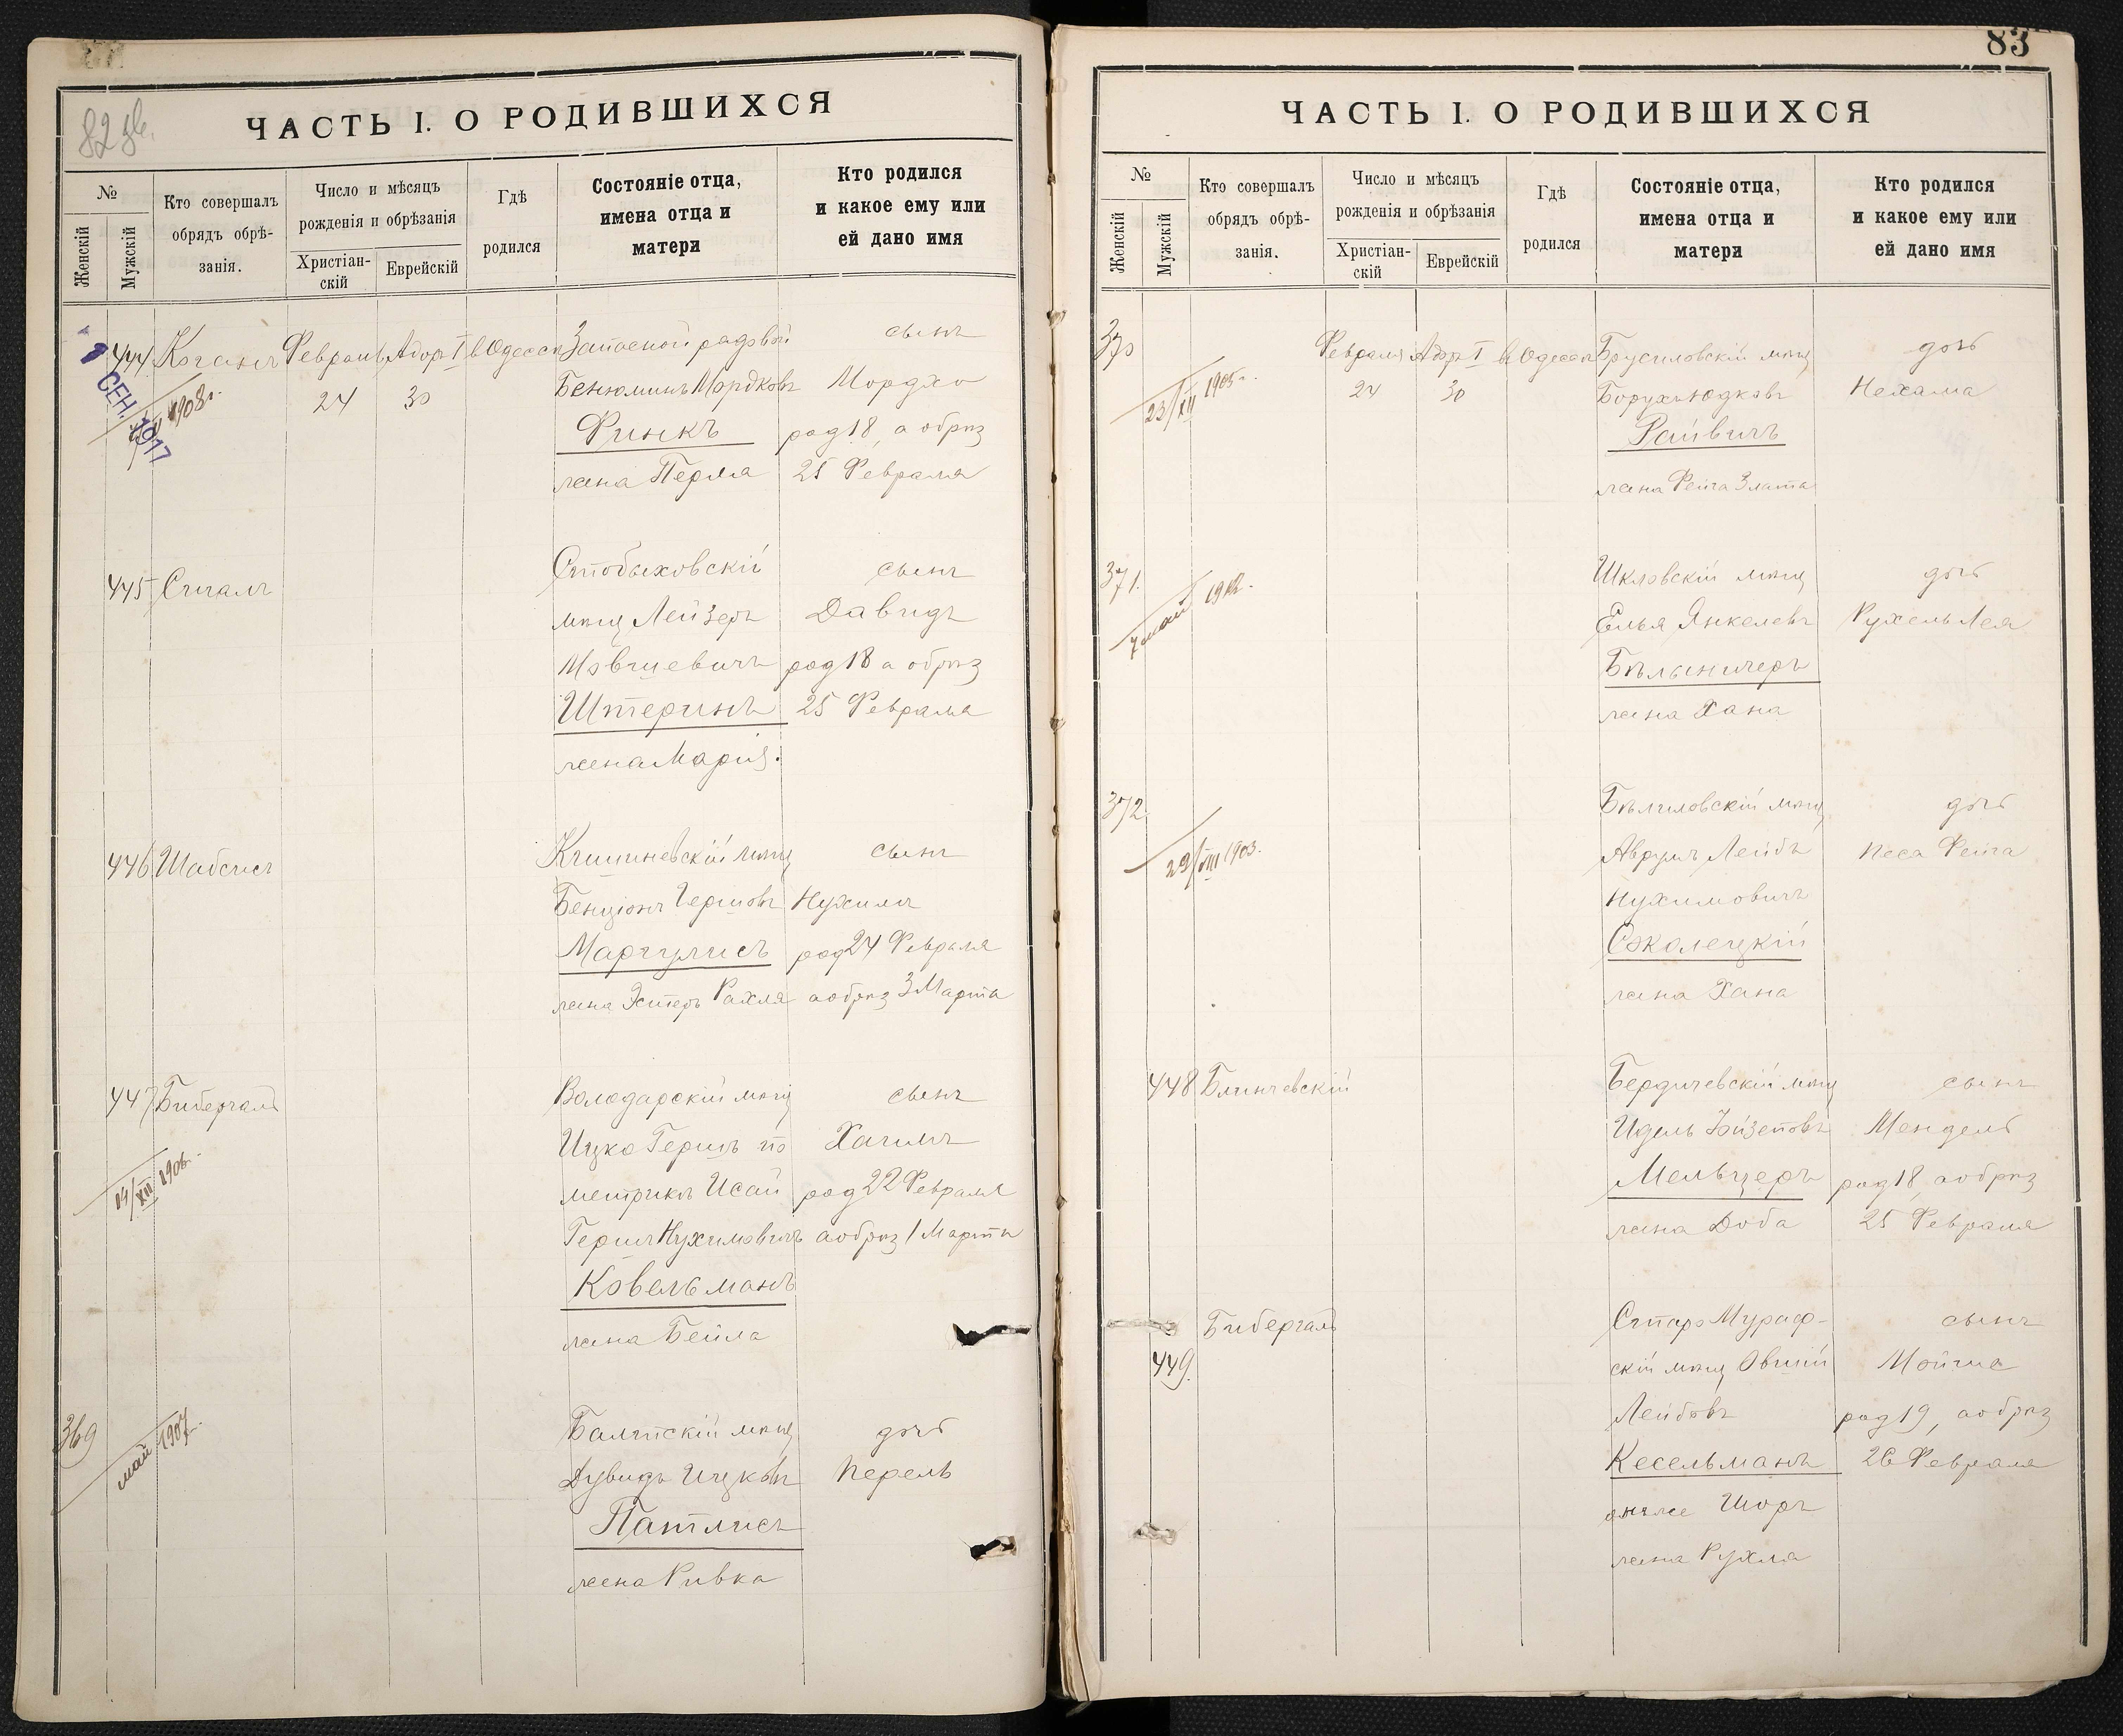 82 зв.
ЧАСТЬ I. О РОДИВШИХСЯ
№
Женскій
Мужскій
Кто совершалъ
обрядъ обрѣ-
занія.
Число и мѣсяцъ
рожденія и обрѣзанія
Христіан-
скій
Еврейскій
Гдѣ
родился
Состояніе отца,
имена отца и
матери
Кто родился
и какое ему или
ей дано имя
444 Коганъ Февраль Адоръ I в Одессѣ Запасной рядовой сынъ
1 СЕН. 1917
1908 г.
24 30 Бенюминъ Мордковъ Мордхо
Финкъ род 18, а обрѣз
жена Перля 25 Февраля
445 Сигалъ Стобыховскій сынъ
мѣщ Лейзеръ Давидъ
Мовшевичъ род 18 а обрѣз
Штеринъ 25 Февраля
жена Марія.
446 Шабсисъ Кишиневскій мѣщ сынъ
Бенціонъ Гершовъ Нухимъ
Маргулисъ род 24 Февраля
жена Эстеръ Рахля а обрѣз 3 Марта
447 Бибергалъ Володарскій мѣщ сынъ
Ицко Гершъ по Хаимъ
14/XII 1906 г.
метрикѣ Исай род 22 Февраля
Гершъ Нухимовичъ а обрѣз 1 Марта
Ковельманъ
жена Бейла
369 Балтскій мѣщ дочь
май 1907 г.
Дувидъ Ицковъ Перель
Патлисъ
жена Ривка
83
ЧАСТЬ I. О РОДИВШИХСЯ
№
Женскій
Мужскій
Кто совершалъ
обрядъ обрѣ-
занія.
Число и мѣсяцъ
рожденія и обрѣзанія
Христіан-
скій
Еврейскій
Гдѣ
родился
Состояніе отца,
имена отца и
матери
Кто родился
и какое ему или
ей дано имя
370 Февраля Адоръ I в Одессѣ Брусиловскій мѣщ дочь
23/XII 1905 г.
24 30 Борухъ Юдковъ Нехама
Райвичъ
жена Фейга Злата
371. Шкловскій мѣщ дочь
7 май 1912.
Елья Янкелевъ Рухель Лея
Бѣлыничеръ
жена Хана
372. Бѣлиловскій мѣщ дочь
29/VIII 1903.
Аврумъ Лейбъ Песа Фейга
Нухимовичъ
Соколецкій
жена Хана
448 Блинчевскій Бердичевскій мѣщ сынъ
Идель Мендель
Мельцеръ род 18, а обрѣз
жена Доба 25 Февраля
Бибергалъ Старо Мураф- сынъ
449. скій мѣщ Овшій Мойше
Лейбовъ род 19, а обрѣз
Кесельманъ 26 Февраля
онъ же Шоръ
жена Рухля